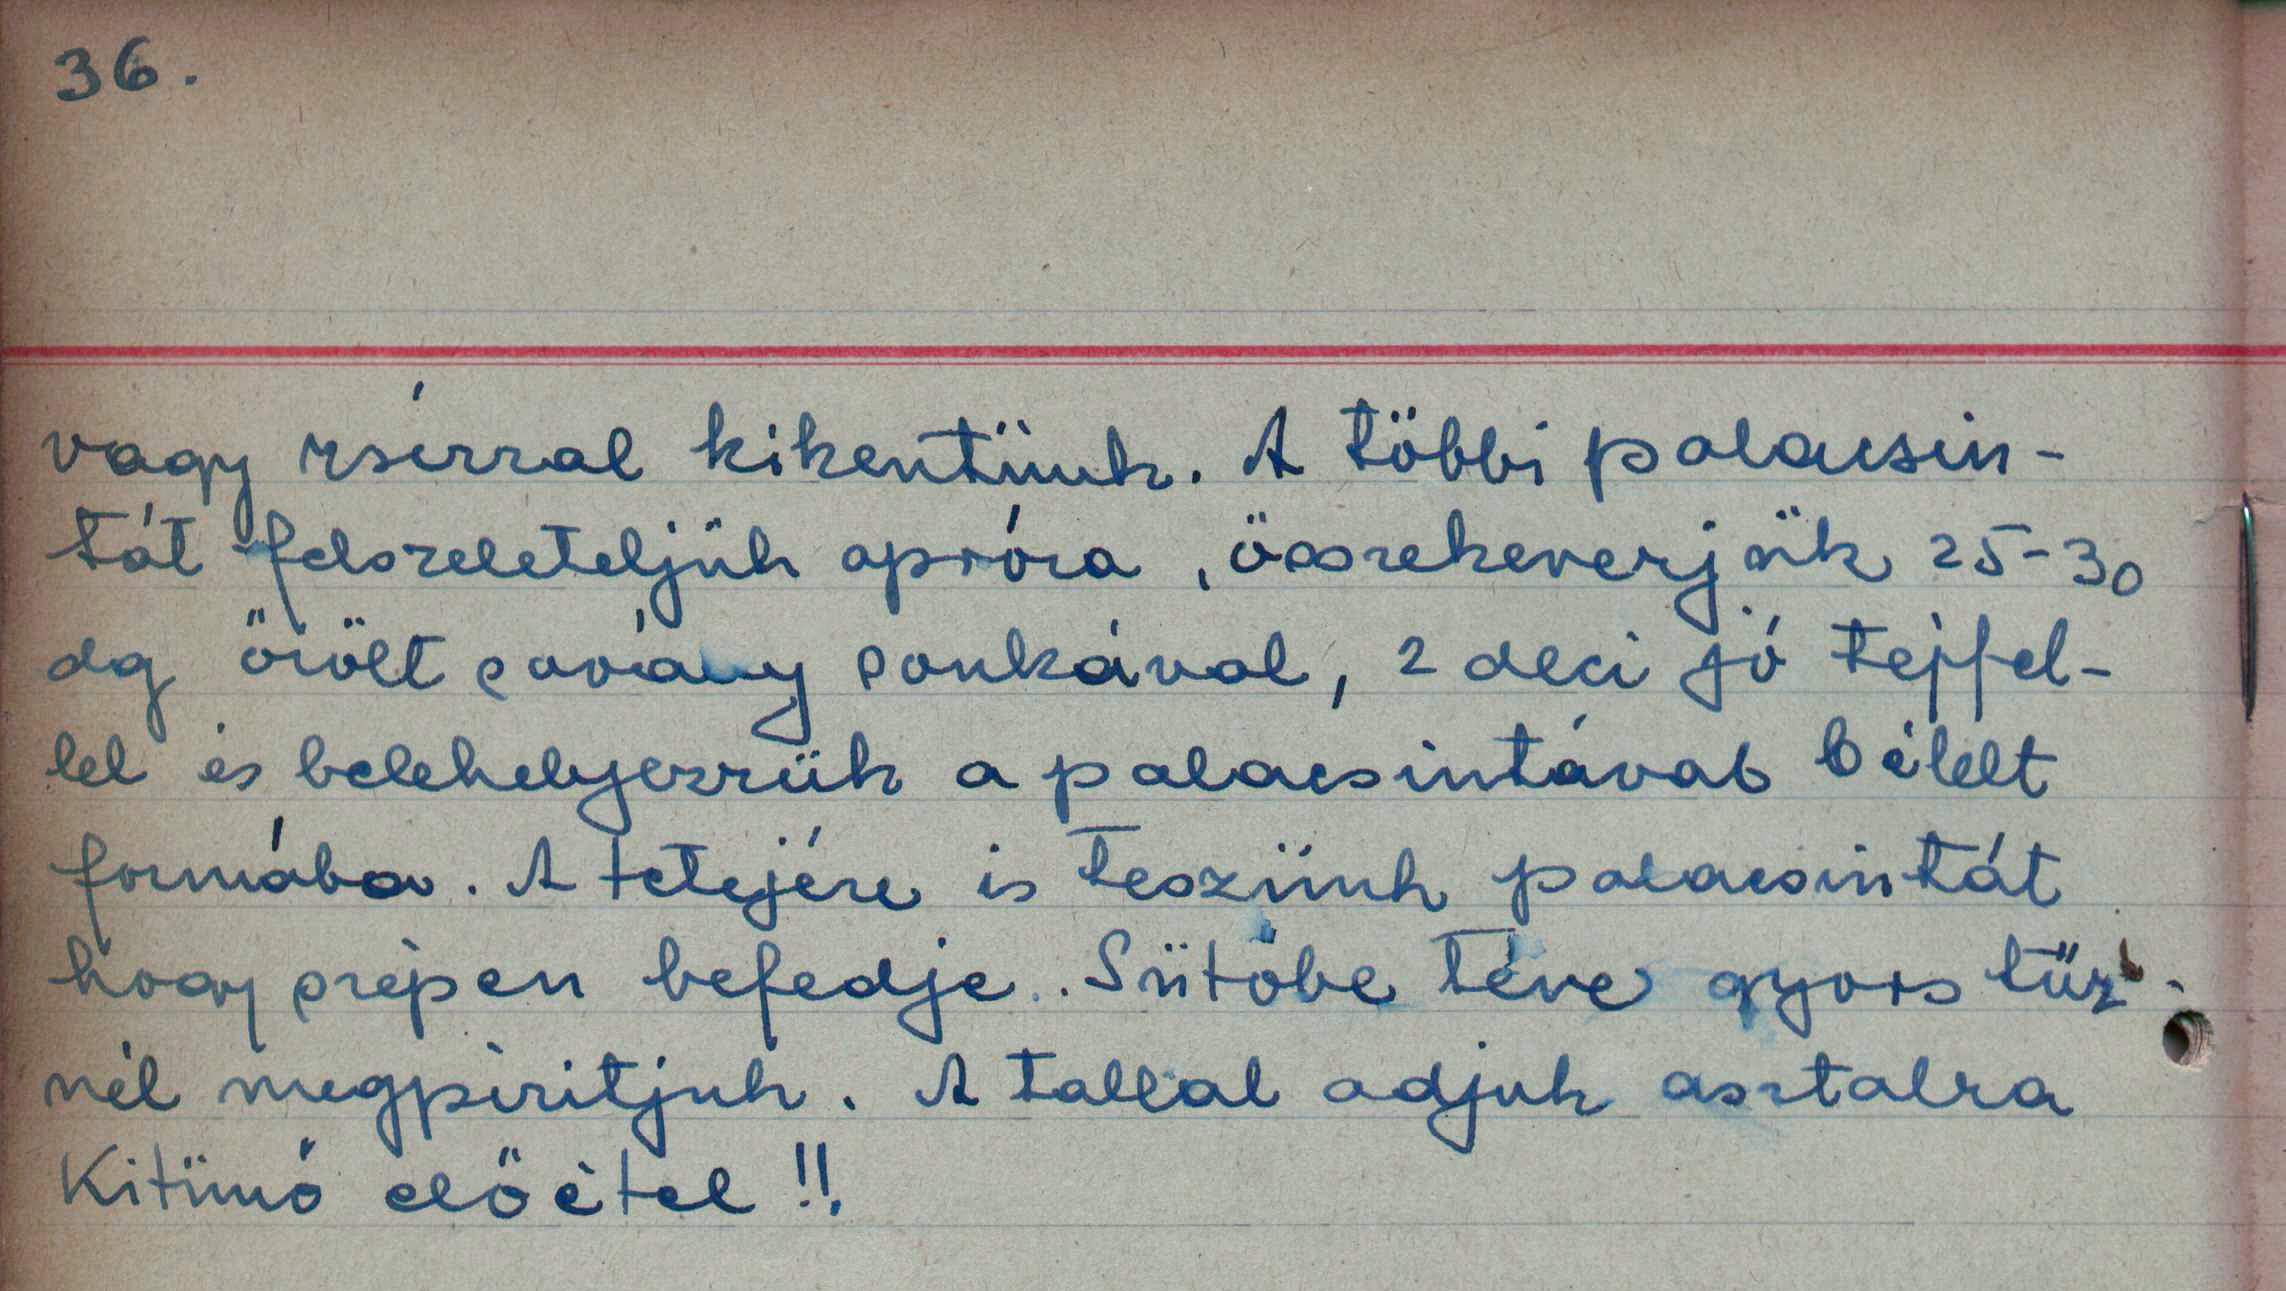 36.
vagy zsírral kikentünk. A többi palacsin-
tát felszeleteljük apróra, összekeverjük 25-30
dg őrölt sovány sonkával, 2 deci jó tejfel-
lel és belehelyezzük a palacsintával bélelt
formába. A tetejére is teszünk palacsintát
hogy szépen befedje.. Sütőbe téve gyors tűz-
nél megpiritjuk. A tallal adjuk asztalra
Kitünő előétel !!